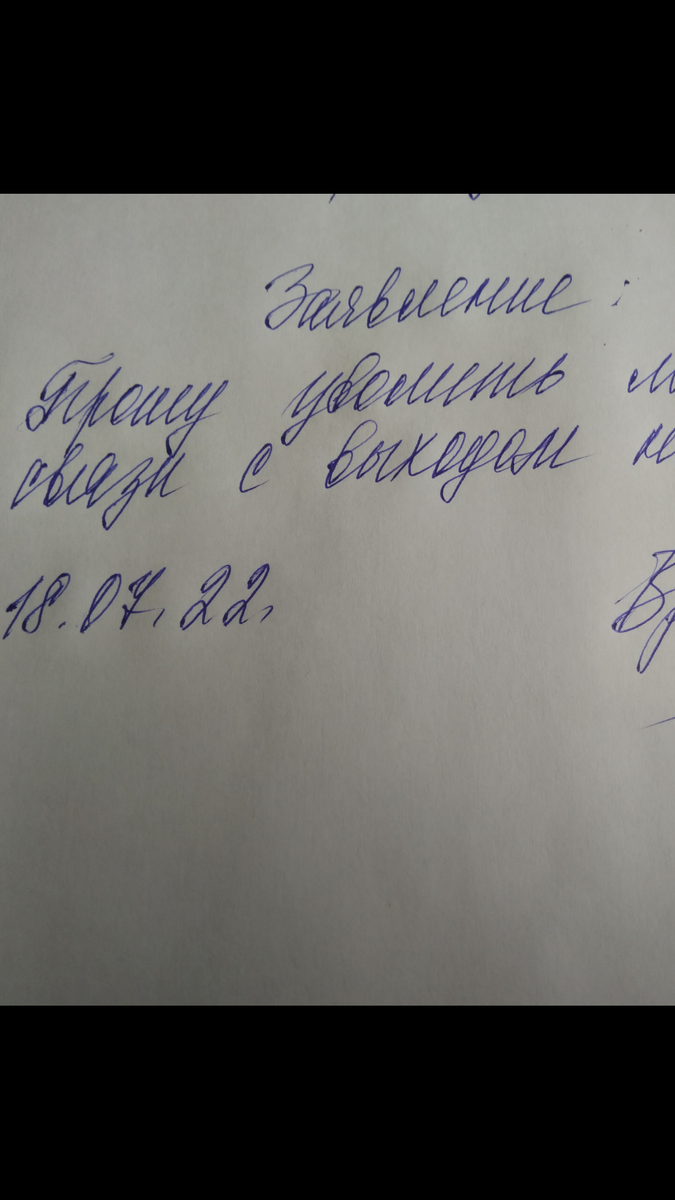 Заявление:
Прошу уволить м
связи с выходом н
18.07.22.
Ву